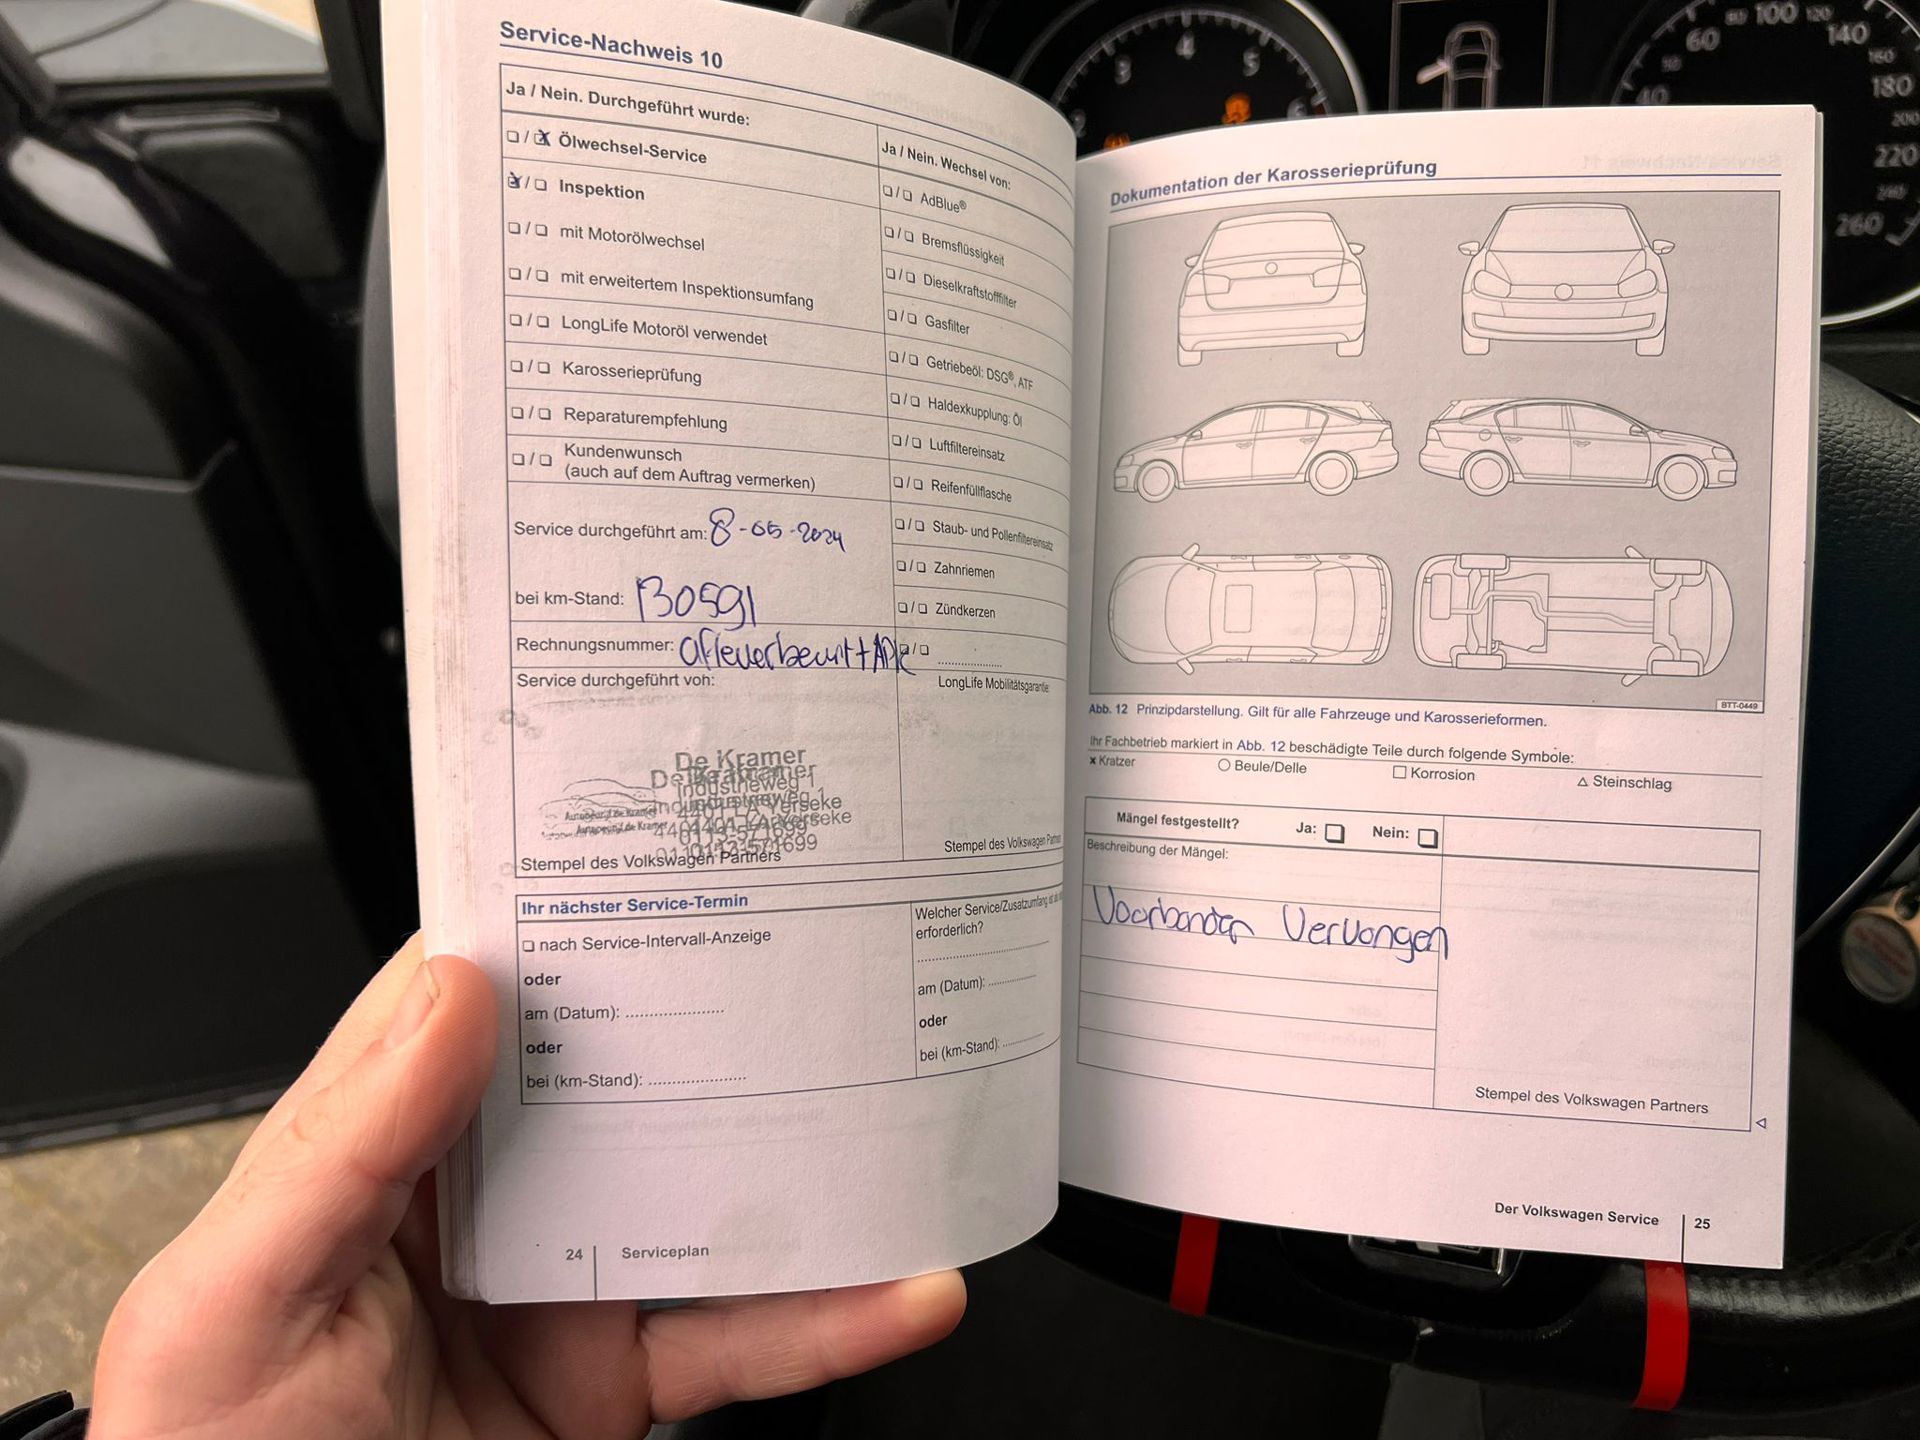 Service-Nachweis 10
Ja / Nein. Durchgeführt wurde:
❏ / ❏ Ölwechsel-Service
❏ / ❏ Inspektion
❏ / ❏ mit Motorölwechsel
❏ / ❏ mit erweitertem Inspektionsumfang
❏ / ❏ LongLife Motoröl verwendet
❏ / ❏ Karosserieprüfung
❏ / ❏ Reparaturempfehlung
❏ / ❏ Kundenwunsch
(auch auf dem Auftrag vermerken)
Service durchgeführt am: 8-05-2024
bei km-Stand: 130591
Rechnungsnummer: afleverbeurt + APK
Service durchgeführt von:
De Kramer
Industrieweg 1
Yerseke
0113-571699
Autobedrijf de Kramer
Stempel des Volkswagen Partners
Ja / Nein. Wechsel von:
❏ / ❏ AdBlue®
❏ / ❏ Bremsflüssigkeit
❏ / ❏ Dieselkraftstofffilter
❏ / ❏ Gasfilter
❏ / ❏ Getriebeöl: DSG®, ATF
❏ / ❏ Haldexkupplung: Öl
❏ / ❏ Luftfiltereinsatz
❏ / ❏ Reifenfüllflasche
❏ / ❏ Staub- und Pollenfiltereinsatz
❏ / ❏ Zahnriemen
❏ / ❏ Zündkerzen
❏ / ❏ ....................
LongLife Mobilitätsgarantie:
Stempel des Volkswagen Partners
Ihr nächster Service-Termin
❏ nach Service-Intervall-Anzeige
oder
am (Datum): .....................
oder
bei (km-Stand): .....................
Welcher Service/Zusatzumfang ist
erforderlich?
am (Datum): ............
oder
bei (km-Stand): ..........
24 Serviceplan
Dokumentation der Karosserieprüfung
BTT-0449
Abb. 12 Prinzipdarstellung. Gilt für alle Fahrzeuge und Karosserieformen.
Ihr Fachbetrieb markiert in Abb. 12 beschädigte Teile durch folgende Symbole:
x Kratzer ○ Beule/Delle □ Korrosion △ Steinschlag
Mängel festgestellt? Ja: ❏ Nein: ❏
Beschreibung der Mängel:
Voorbanden Vervangen
Stempel des Volkswagen Partners
Der Volkswagen Service 25
2 3 4 5 6
40 60 80 100 120 140 160 180 200 220 240 260